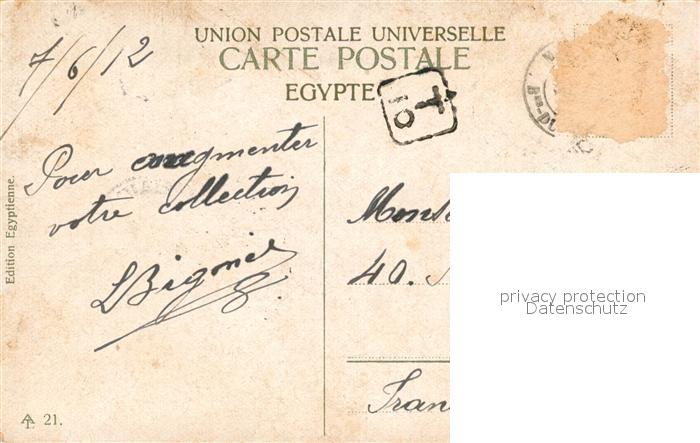 7/6/12
UNION POSTALE UNIVERSELLE
CARTE POSTALE
EGYPTE
T
10
Pour augmenter
votre collection
LBigonie
Mons
40.
Fran
privacy protection
Datenschutz
Edition Egyptienne.
AT 21.